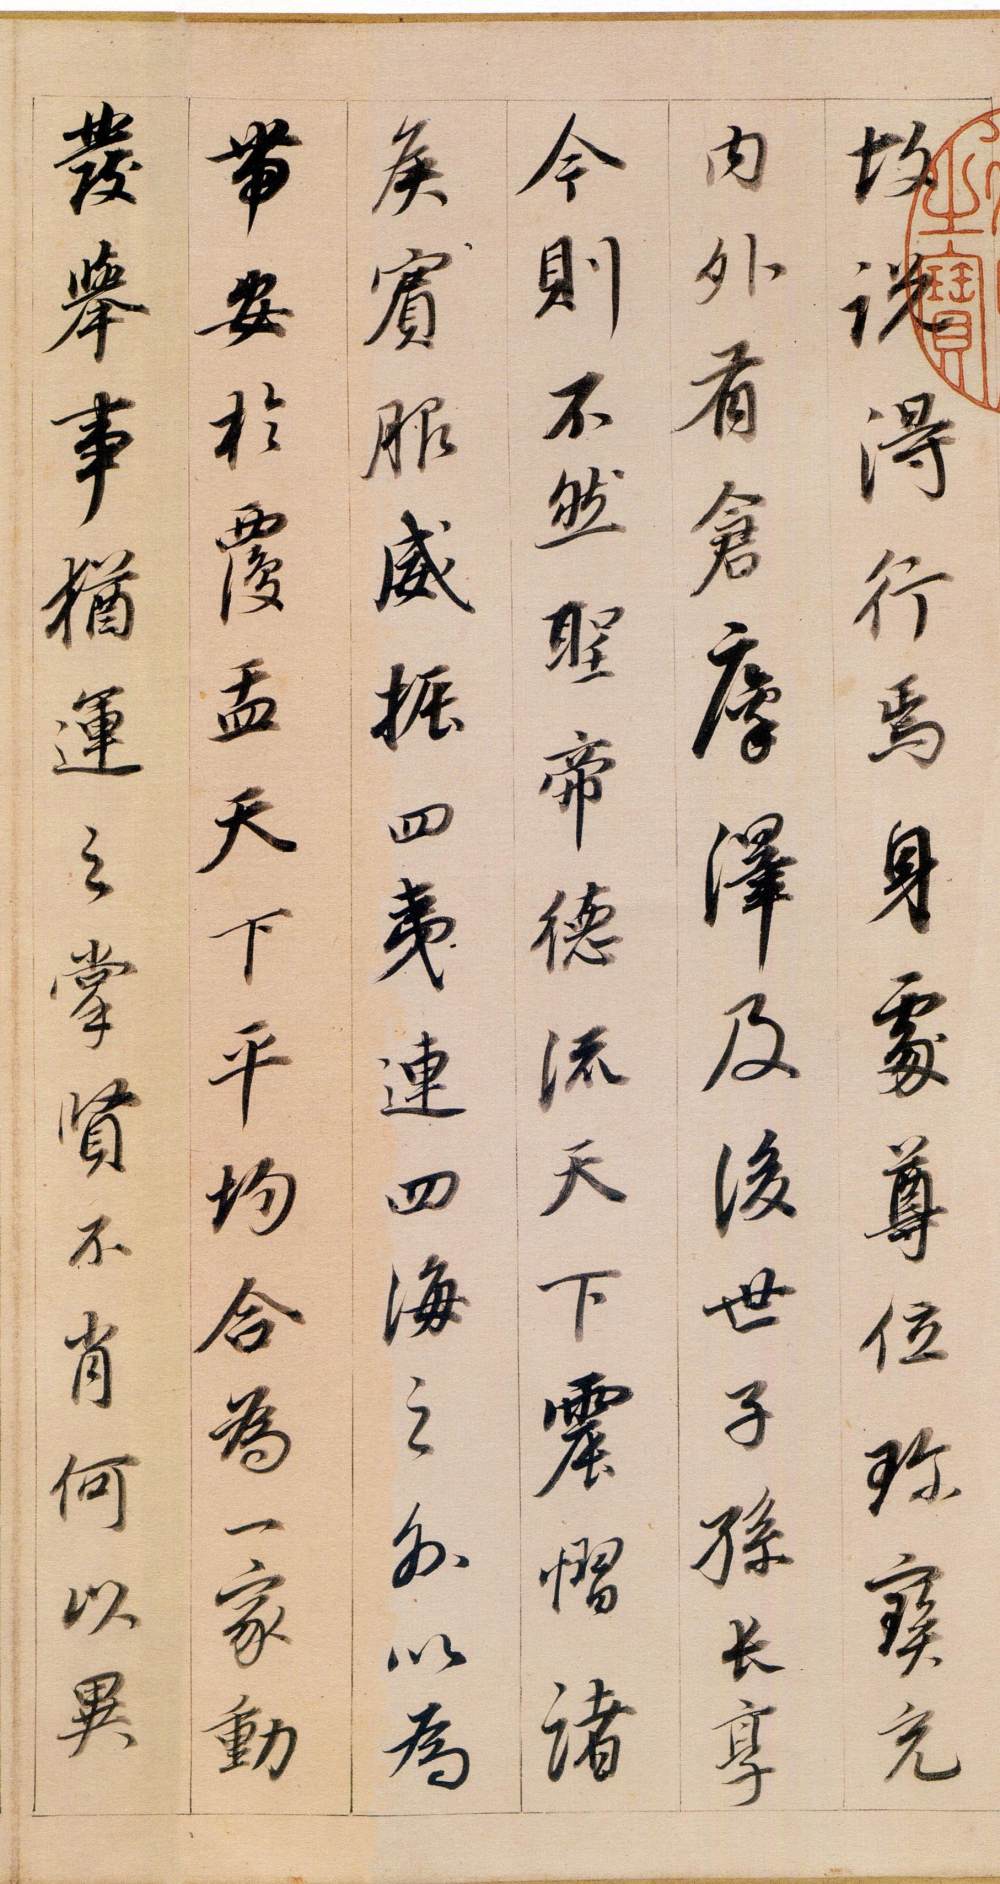 故說得行焉身處尊位珎寶充
内外有倉廩澤及後世子孫長享
今則不然聖帝德流天下震慴諸
矦賓服威振四夷連四海之外以為
帶安於覆盂天下平均合為一家動
發舉事猶運之掌賢不肖何以異
之寶